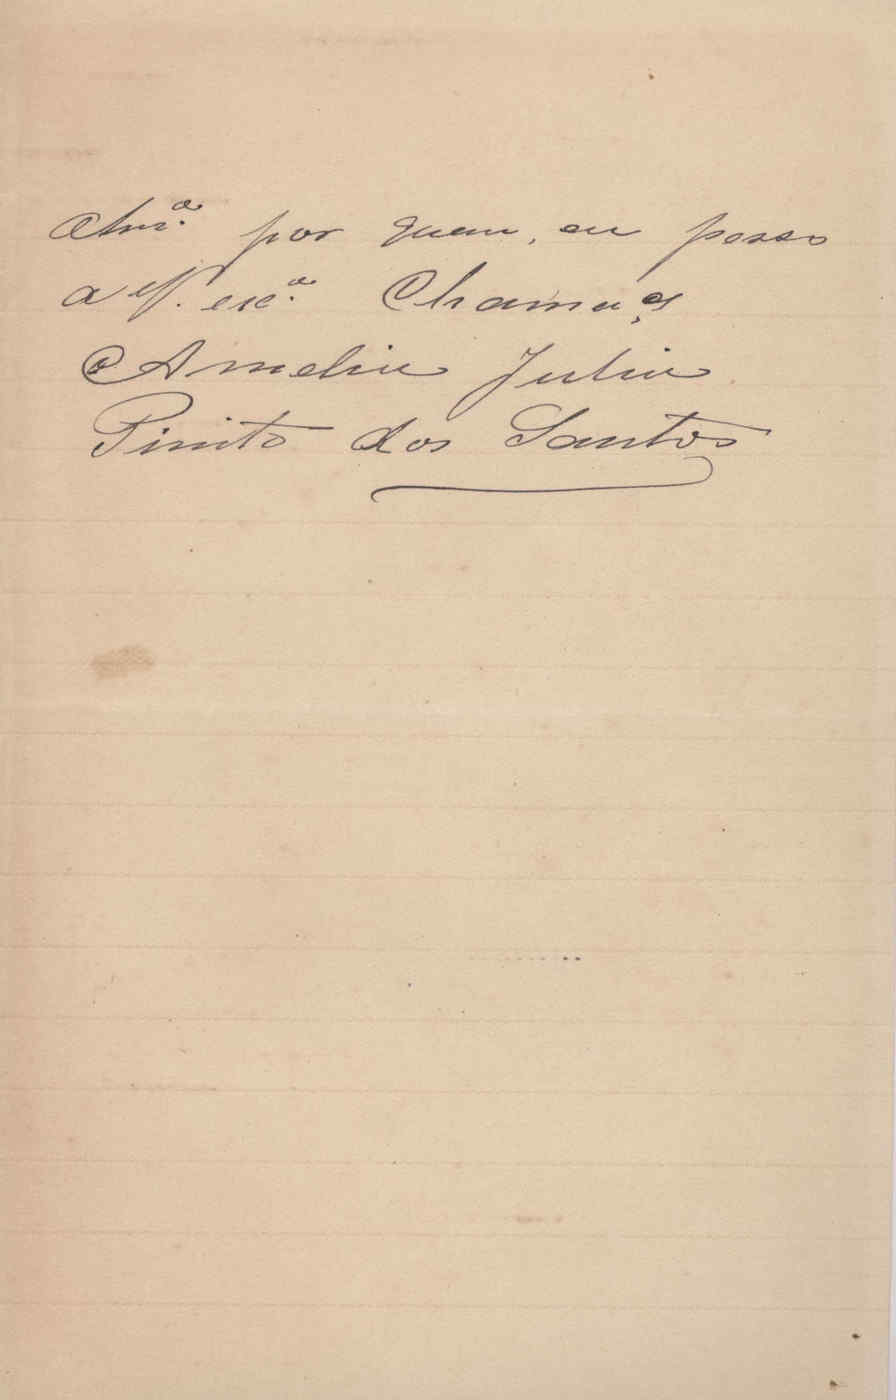 Atn.ª por quem, eu pesso
a V. exc.ª Chama se
Amelia Julia
Pinito dos Santos